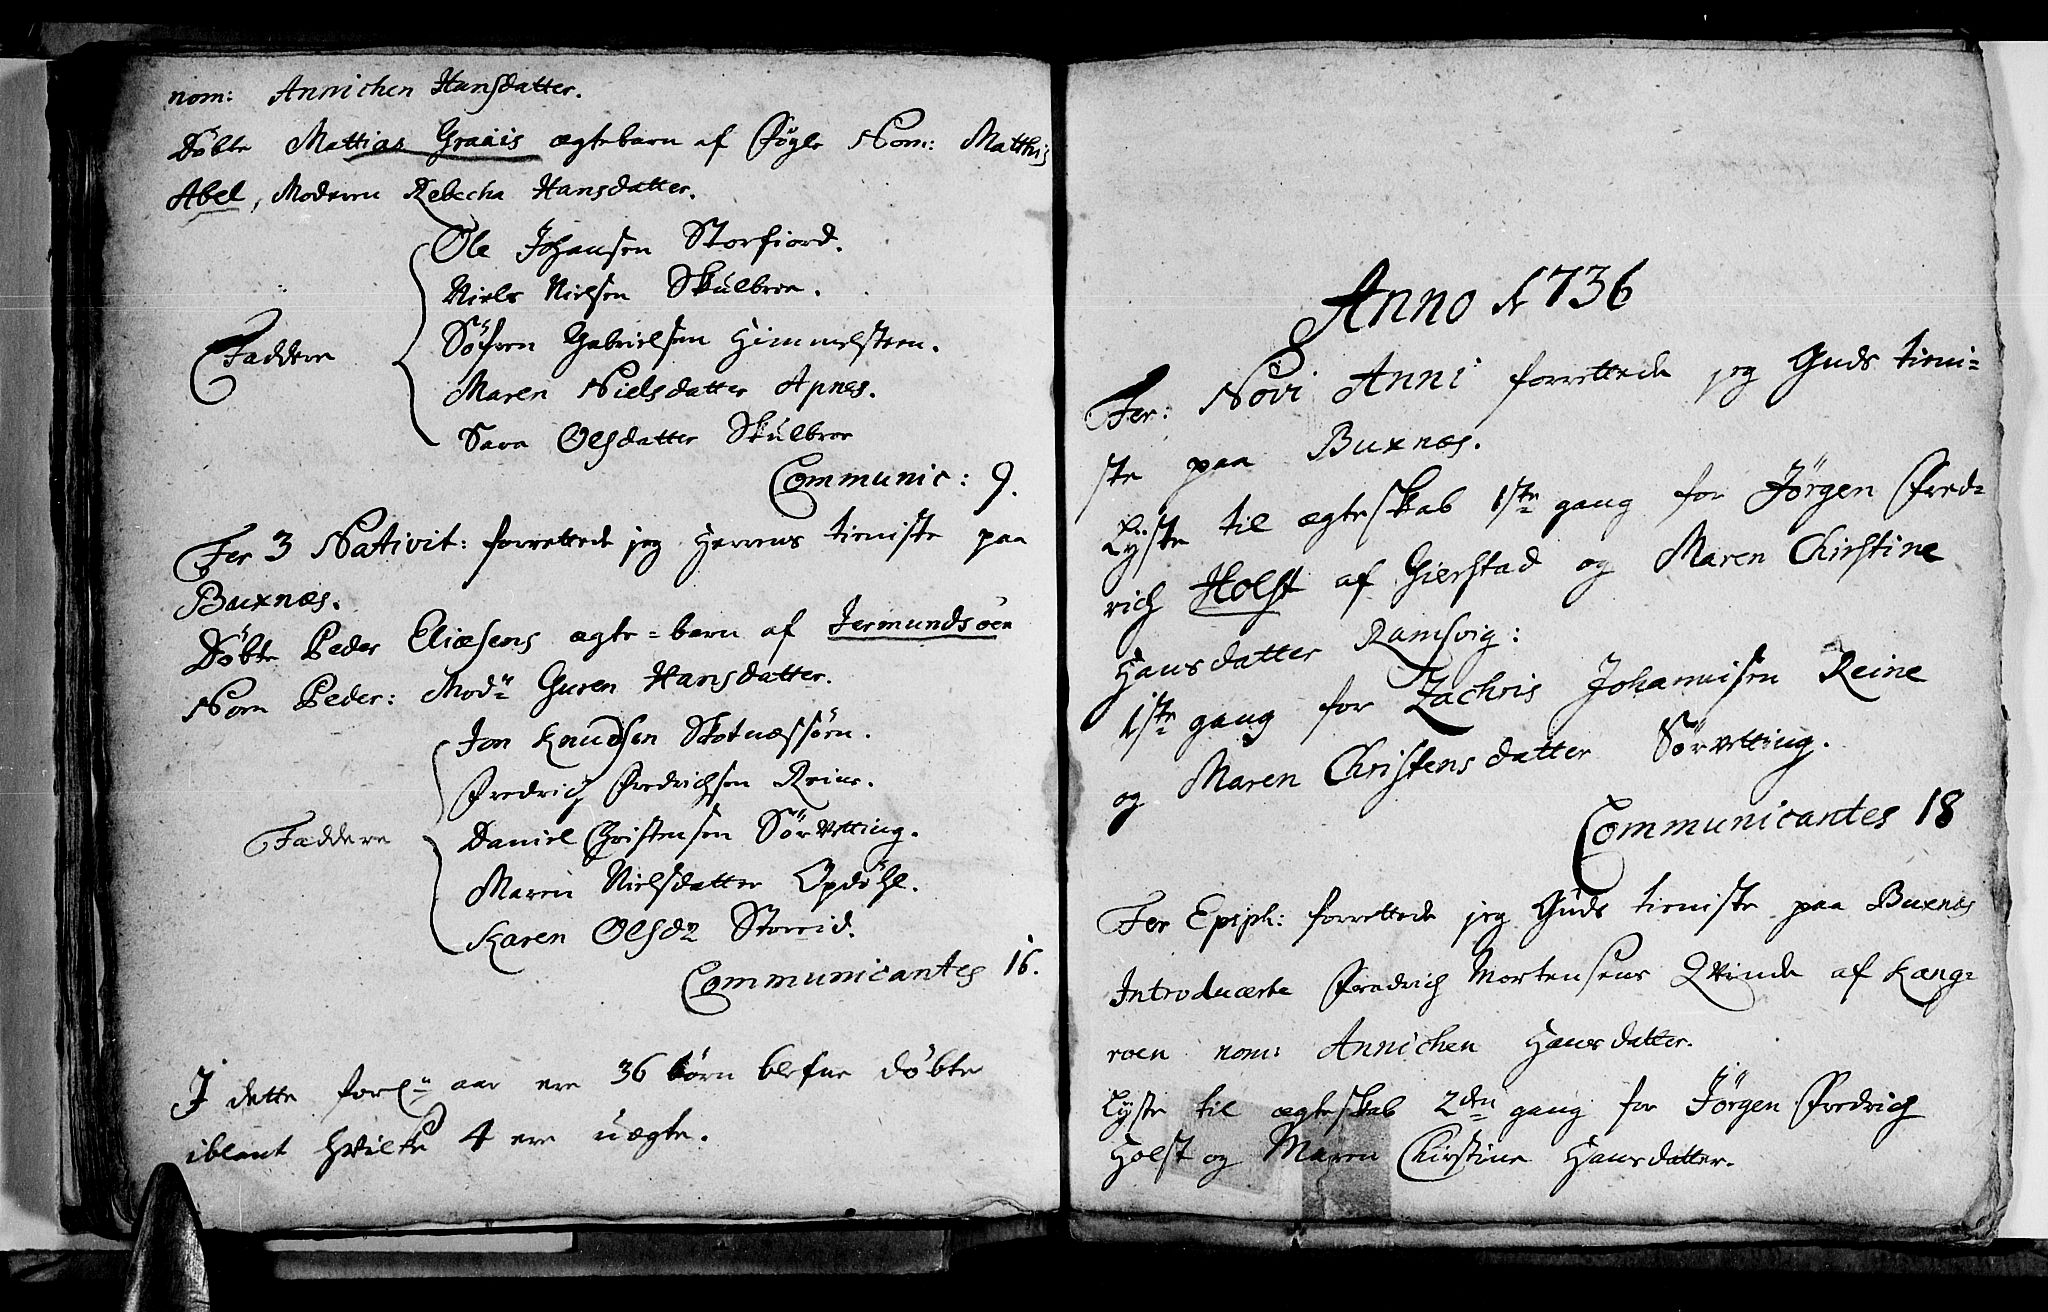 nom: Annichen Hansdatter.
Döbte Mattias Graais ægtebarn af Fögle Nom: Matthis
Abel, Moderen Rebecha Hansdatter.
Ole Johansen Storfiord.
Niels Nielsen Skulbroe.
Söfren Gabrielsen Himmelsteen.
Faddere
Maren Nielsdatter Apnes.
Sara Olsdatter Skulbroe
Communic: 9.
Fer 3 Nativit: forrettede jeg Herrens tieniste paa
Buxnæs.
Döbte Peder Eliæsens ægte=barn af Jermundsöen
Nom Peder: Mod: Guren Hansdatter.
Jon Knudsen Skotnæssörn.
Fredrich Fredrichsen Reine.
Faddere
Daniel Christensen Sörvetting.
Maren Nielsdatter Opdöhl.
Karen Olsdr Storeid.
Communicantes 16.
I dette forl: aar ere 36 börn blefne döbte
iblant hvilke 4 ere uægte.
Anno 1736
Fer: Novi Anni forrettede jeg Guds tieni-
ste paa Buxnæs.
Lyste til ægteskab 1ste gang for Jörgen Fred-
rich Holst af Gierstad og Maren Chirstine
Hansdatter Ramsvig:
1ste gang for Zachris Johannisen Reine
og Maren Christensdatter Sörvetting.
Communicantes 18
Fer Epiph: forrettede jeg Guds tieniste paa Buxnæs
Introducerte Fredrich Mortensens Qvinde af Kang=
roen nom: Annichen Hansdatter.
Lyste til ægteskab 2den gang for Jörgen Fredrich
Holst og Maren Chirstine Hansdatter.